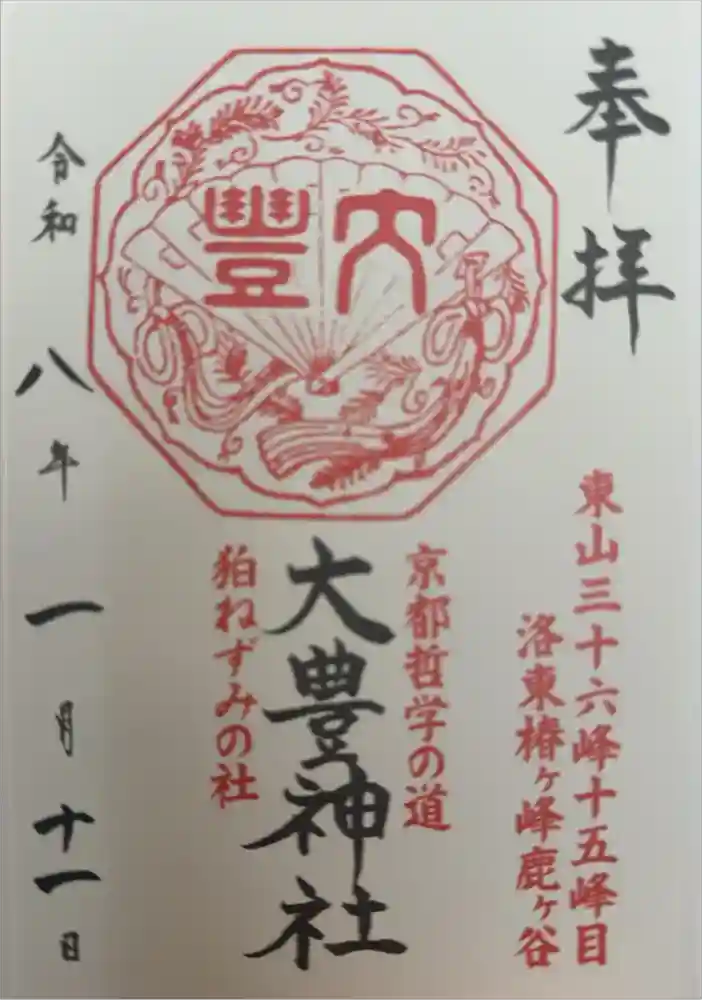 奉拝
東山三十六峰十五峰目
洛東椿ヶ峰鹿ヶ谷
大豐
京都哲学の道
大豊神社
狛ねずみの社
令和八年一月十一日